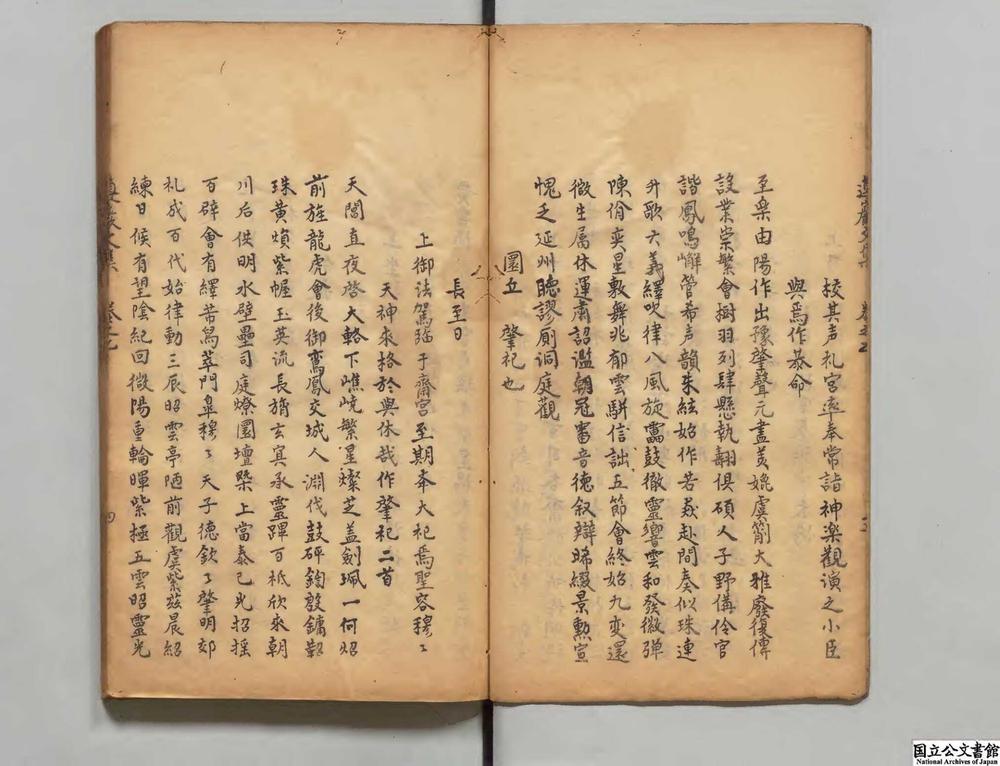 校其声礼宫遂奉常詣神楽觀演之小臣
與焉作恭命
至楽由陽作出豫肇聲元盡美媲虞簫大雅廢復傳
設業崇繁會樹羽列肆懸執翿俱碩人子野偹伶官
諧鳳鳴嶰管希声韻朱絃始作若猋赴間奏似珠連
升歌六義繹吹律八風旋靁鼓徹靈響雲和發微弾
陳佾奕星敷舞兆郁雲駢信詘五節會終始九变還
微生属休運肅詔濫朝冠審音德叙辯睎綴景勲宣
愧乏延州聴謬厠洞庭觀
圜丘 肇祀也
長至日
上御法駕臨于齋宮至期奉大祀焉聖容穆〻
天神來格於與休哉作肇祀二首
天閶直夜啓大輅下嶕嶢繁星燦芝盖劍珮一何炤
前旌龍虎會後御鸞鳳交城人淵伐鼓砰鍧殷鏞
珠黄煩紫幄玉英流長旓玄冥承靈蹕百祇欣來朝
川后供明水壁壘司庭燎圜壇槩上當泰乙光招摇
百辟會有繹芾舄萃門皐穆〻天子德欽〻肇明郊
礼成百代始律動三辰昭雲亭陋前觀虞紫兹晨紹
練日候有望陰紀回微陽重輪暉紫極五雲昭靈光
遵巖文集 卷之
四
国立公文書館
National Archives of Japan